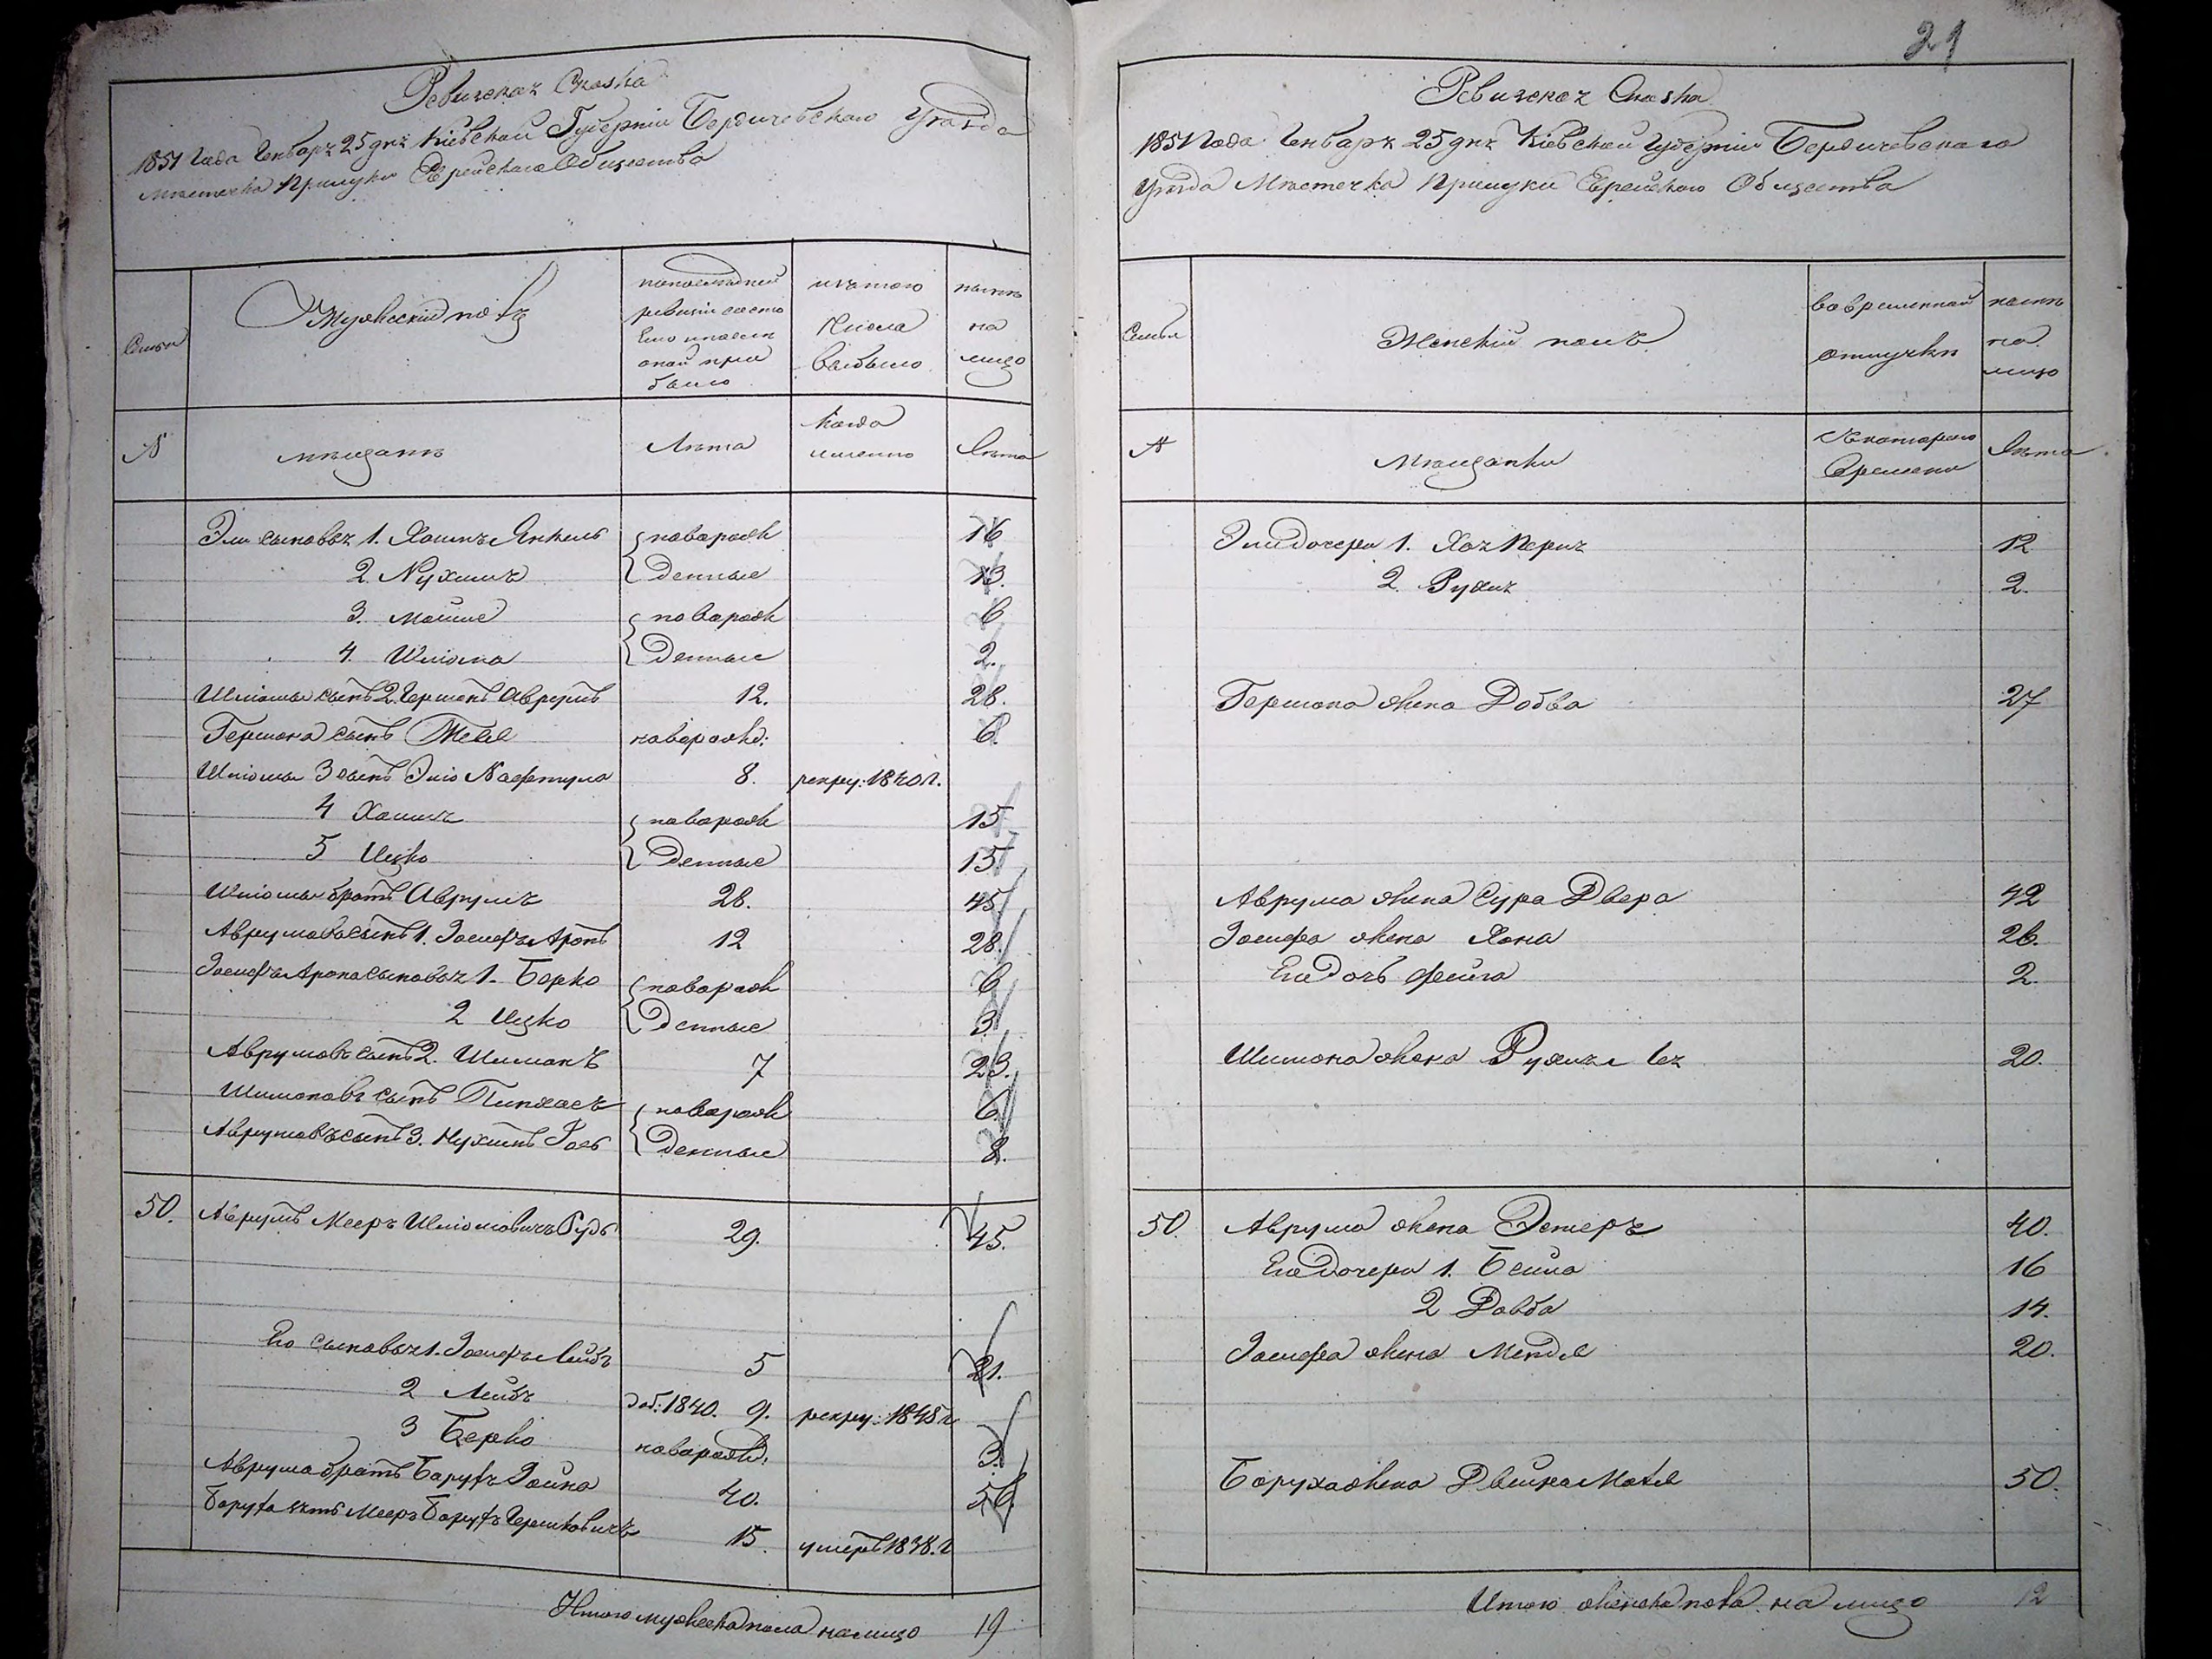 Ревизская Сказка
1851 Года Генваря 25 дня Кіевской Губерніи Бердичевского Уѣзда
Мѣстечка Прилуки Еврейского Общества
Семья
Мужескій полъ
по последней
ревизіи состо
яло и после
оной при
было
изътого
Числа
выбыло
нынѣ
на
лицо
N
мещанѣ
Лѣта
когда
именно
Лѣта
Эли сыновья 1. Хаимъ Янкель
новорож
16
2. Нухимъ
денные
13.
3. Мойше
новорож
6
4. Шлiома
денные
2.
Шлiомы сынъ 2. Гершонъ Аврумъ
12.
28.
Гершона сынъ Тевел
новорожд:
6.
Шлiомы 3 сынъ Элiо Нафтула
8.
рекру: 1840 г.
4 Хаимъ
новорож
15
5 Ицко
денные
13
Шлiомы братъ Аврумъ
28.
45
Аврумовъ сынъ 1. Iосифъ Аронъ
12
28.
Iосифъ Арона сыновья 1. Борко
новорож
6
2 Ицко
денные
3.
Аврумовъ сынъ 2. Шимонъ
7
23.
Шимоновъ сынъ Пинхасъ
новорож
6
Аврумовъ сынъ 3. Нухимъ Iось
денные
8.
50.
Аврумъ Мееръ Шлiомовичъ Рудь
29.
45.
Его сыновья 1. Iосифъ Лейбъ
5
21.
2 Лейбъ
доб: 1840. 9.
рекру: 1848 г
3 Берко
новорожд:
3.
Аврума братъ Барухъ Iойна
40.
56.
Баруха зять Мееръ Барухъ Гершковичъ
15.
умеръ 1838. г
Итого мужеска пола налицо
19
21
Ревизская Сказка
1851 Года Генваря 25 дня Кіевской Губерніи Бердичевскаго
Уѣзда Мѣстечка Прилуки Еврейского Общества
Семья
Женскій полъ.
во временной
отлучкѣ
нынѣ
на
лицо
N
Мещанки
Скотораго
Времени
Лѣта
Эли дочери 1. Хая Перля
12
2. Рухля
2.
Гершона жена Добва
27
Аврума жена Сура Двера
42
Iосифа жена Хана
26.
Его дочь Фейга
2.
Шимона жена
20.
50.
Аврума жена Эстеръ
40.
Его дочери 1. Бейла
16
2 Довба
14.
Iосифа жена Миндл
20.
Боруха жена Двейра Мотл
50.
Итого женска пола на лицо
12